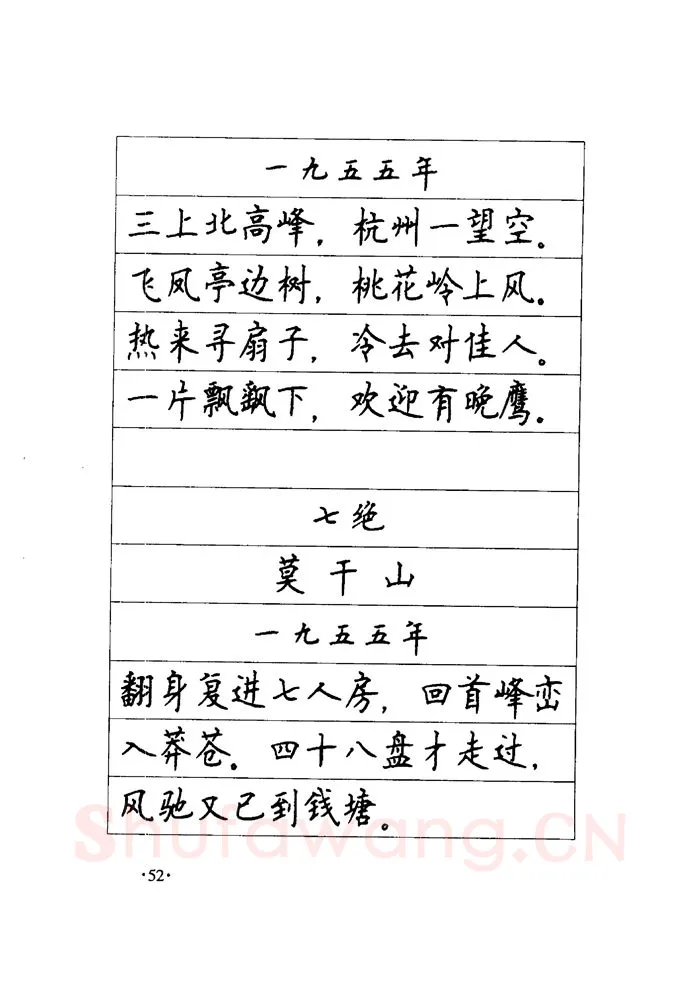 一九五五年
三上北高峰，杭州一望空。
飞凤亭边树，桃花岭上风。
热来寻扇子，冷去对佳人。
一片飘飘下，欢迎有晚鹰。
七绝
莫干山
一九五五年
翻身复进七人房，回首峰峦
入莽苍。四十八盘才走过，
风驰又已到钱塘。
Shufawang.CN
·52·